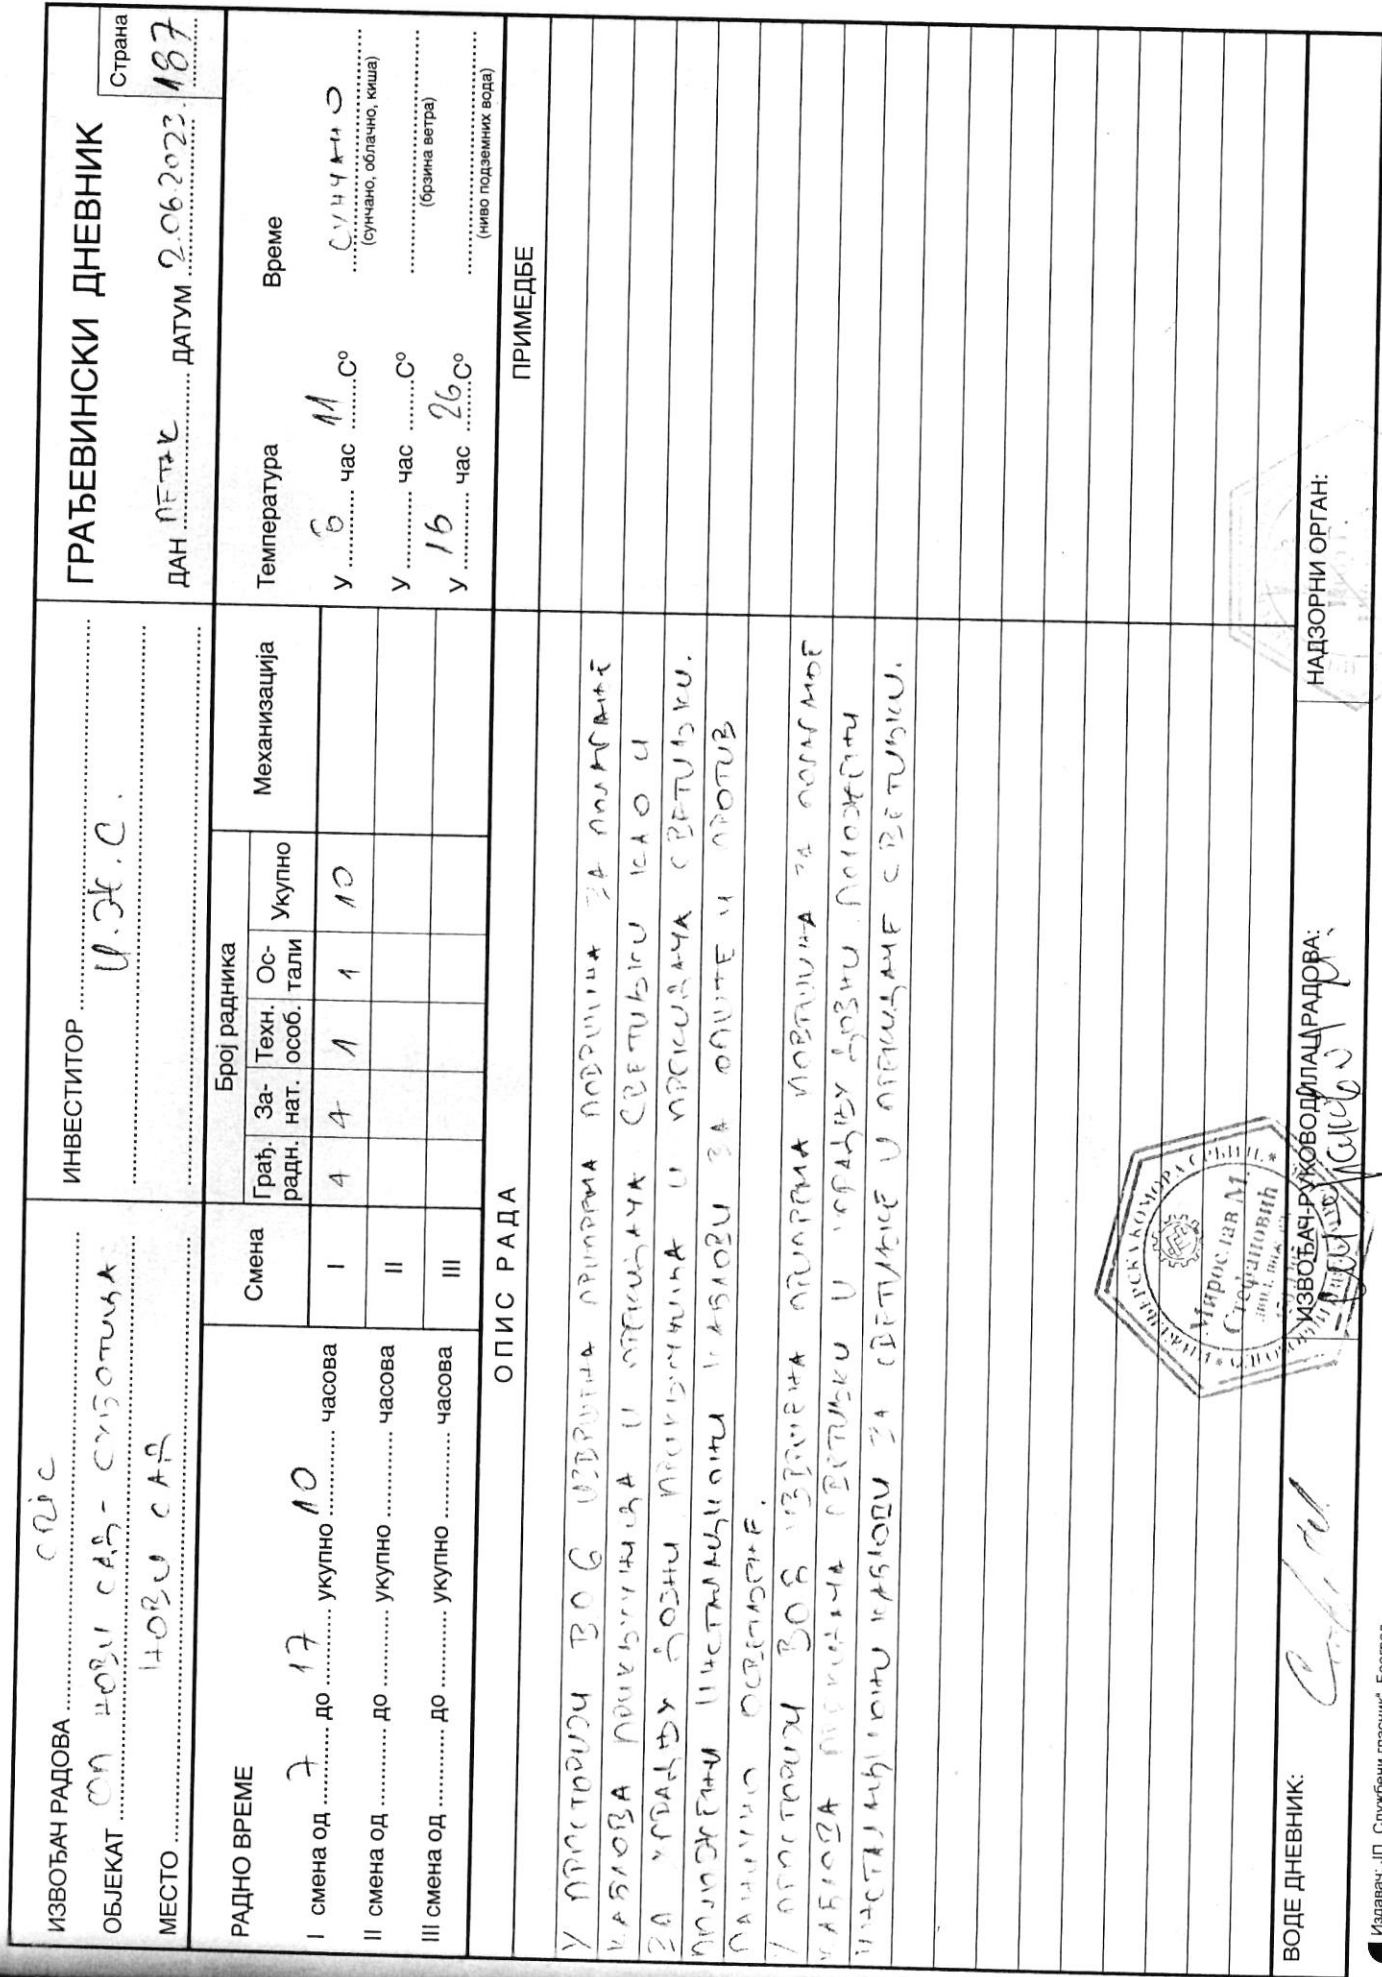 ИЗВОЂАЧ РАДОВА
ОБЈЕКАТ НОВИ САД - СУБОТИЦА
МЕСТО НОВИ САД
ИНВЕСТИТОР И.Ж.С.
ГРАЂЕВИНСКИ ДНЕВНИК
Страна 187
ДАН ПЕТАК ДАТУМ 2.06.2023.
РАДНО ВРЕМЕ
I смена од 7 до 17 укупно 10 часова
II смена од до укупно часова
III смена од до укупно часова
Смена
I
II
III
Број радника
Грађ. радн. За- нат. Техн. особ. Ос- тали Укупно
4 4 1 1 10
Механизација
Температура
у 6 час 11 C°
у час C°
у 16 час 26 C°
Време
СУНЧАНО
(сунчано, облачно, киша)
(брзина ветра)
(ниво подземних вода)
ОПИС РАДА
ПРИМЕДБЕ
У ПРОСТОРИЈИ ВО6 ИЗВРШЕНА ПРИПРЕМА ПОВРШИНА ЗА ПОЛАГАЊЕ
КАБЛОВА ПРИКЉУЧНИЦА И ПРЕКИДАЧА СВЕТИЉКИ КАО И
ЗА УГРАДЊУ ДОЗНИ ПРИКЉУЧНИЦА И ПРЕКИДАЧА СВЕТИЉКИ.
ПОЛОЖЕНИ ИНСТАЛАЦИОНИ КАБЛОВИ ЗА ОПШТЕ И ПРОТИВ
ПАНИЧНО ОСВЕТЉЕЊЕ.
У ПРОСТОРИЈИ ИЗВРШЕНА ПРИПРЕМА ПОВРШИНА ЗА ПОЛАГАЊЕ
КАБЛОВА ПРЕКИДАЧА СВЕТИЉКИ И УГРАДЊУ ДОЗНИ. ПОЛОЖЕНИ
ИНСТАЛАЦИОНИ КАБЛОВИ ЗА СВЕТИЉКЕ И ПРЕКИДАЧЕ СВЕТИЉКИ.
ВОДЕ ДНЕВНИК:
ИЗВОЂАЧ-РУКОВОДИЛАЦ РАДОВА:
НАДЗОРНИ ОРГАН:
ИНЖЕЊЕРСКА КОМОРА СРБИЈЕ
Мирослав М.
Стефановић
Издавач: ЈП „Службени гласник", Београд